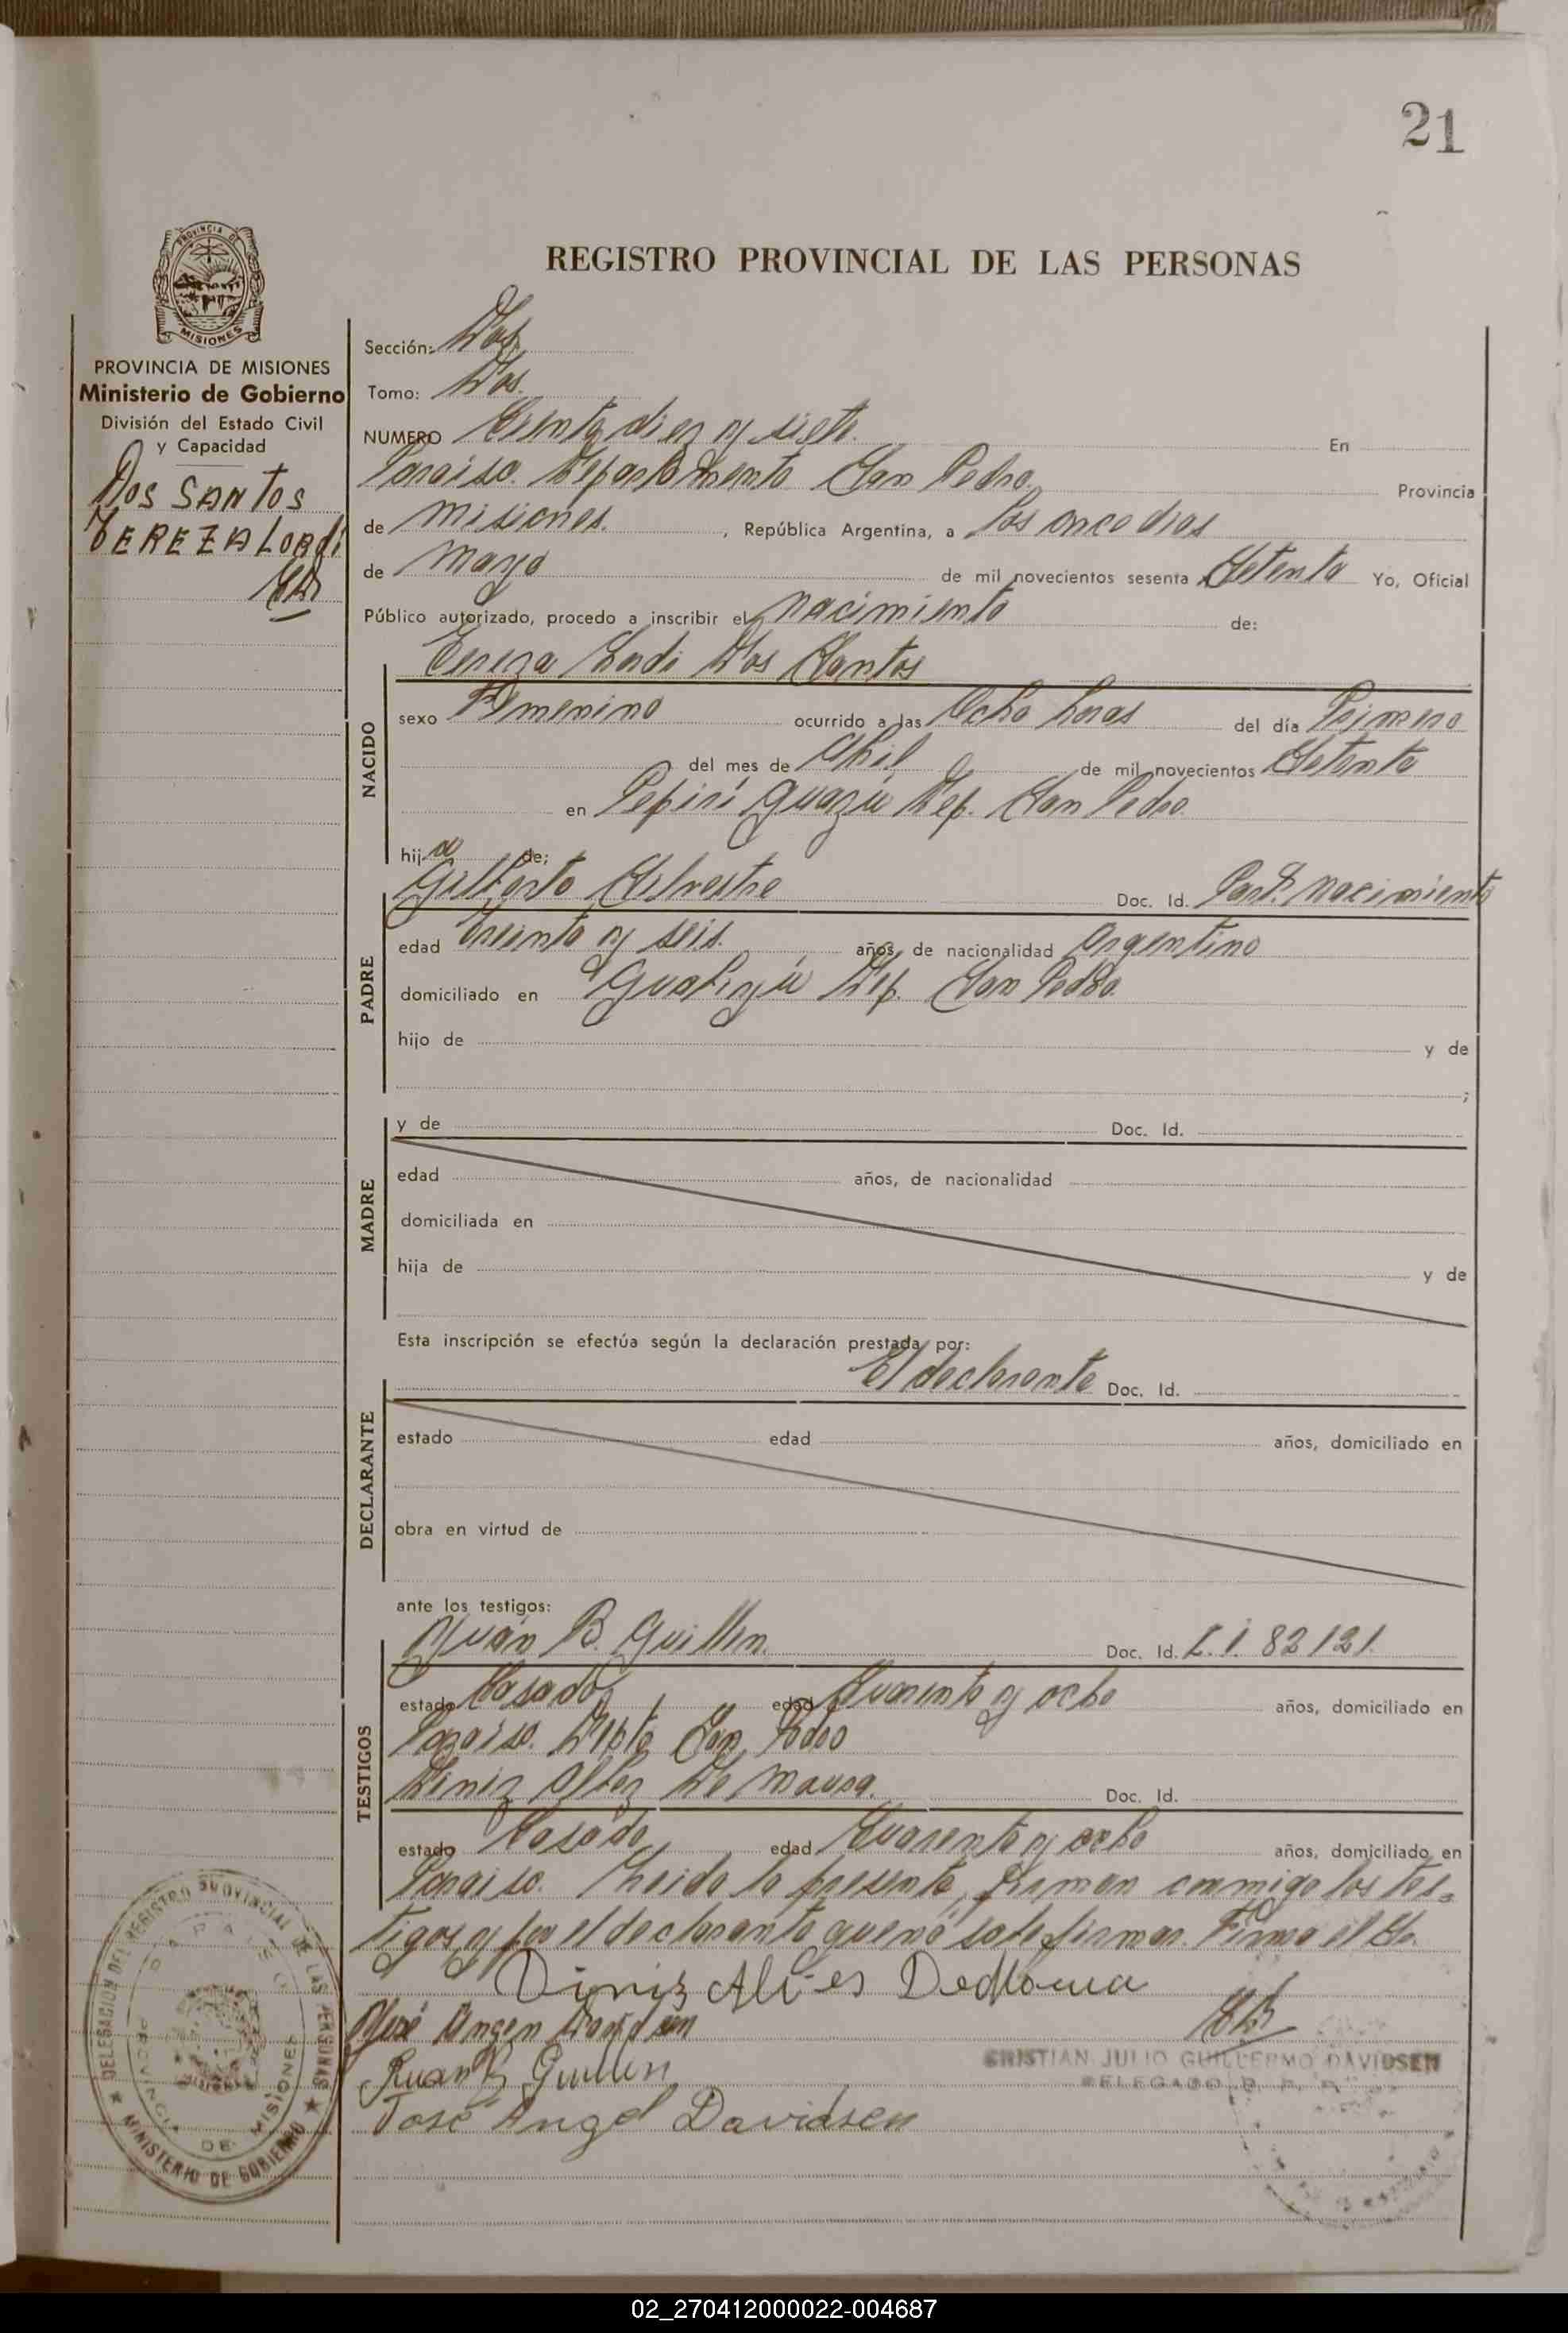 21
PROVINCIA DE
MISIONES
REGISTRO PROVINCIAL DE LAS PERSONAS
PROVINCIA DE MISIONES
Ministerio de Gobierno
División del Estado Civil
y Capacidad
DOS SANTOS
TEREZA LORDI
Sección: Dos
Tomo: Dos.
NUMERO Ciento diez y siete. En
Paraiso. Departamento San Pedro. Provincia
de Misiones. , República Argentina, a los once dias
de Mayo de mil novecientos sesenta Setenta Yo, Oficial
Público autorizado, procedo a inscribir el nacimiento de:
Tereza Lordi Dos Santos
NACIDO
sexo Femenino ocurrido a las Ocho horas del día Primero
del mes de Abril de mil novecientos Setenta
en Pepirí Guazú Dep. San Pedro.
hija de;
Gilberto Silvestre Doc. Id. Part. nacimiento
PADRE
edad Treinta y seis. años, de nacionalidad Argentino
domiciliado en Dep. San Pedro.
hijo de y de
;
MADRE
y de Doc. Id.
edad años, de nacionalidad
domiciliada en
hija de y de
Esta inscripción se efectúa según la declaración prestada por:
El declarante Doc. Id.
DECLARANTE
estado edad años, domiciliado en
obra en virtud de
ante los testigos:
Juán B. Guillen. Doc. Id. L.I. 82121.
TESTIGOS
estado Casado edad Cuarenta y ocho años, domiciliado en
Paraiso. Depto San Pedro
Diniz De Doc. Id.
estado Casado edad Cuarenta y ocho años, domiciliado en
Paraiso. Leida la presente, firman conmigo los tes-
tigos y por el declarante que no sabe firmar. Firma el Sr.
Diniz
José Angel Davidsen
Juan B Guillen
José Angel Davidsen
CRISTIAN JULIO GUILLERMO DAVIDSEN
DELEGADO R. P. P.
DELEGACION DEL REGISTRO PROVINCIAL DE LAS PERSONAS
PARAISO
PROVINCIA DE MISIONES
MINISTERIO DE GOBIERNO
02_270412000022-004687